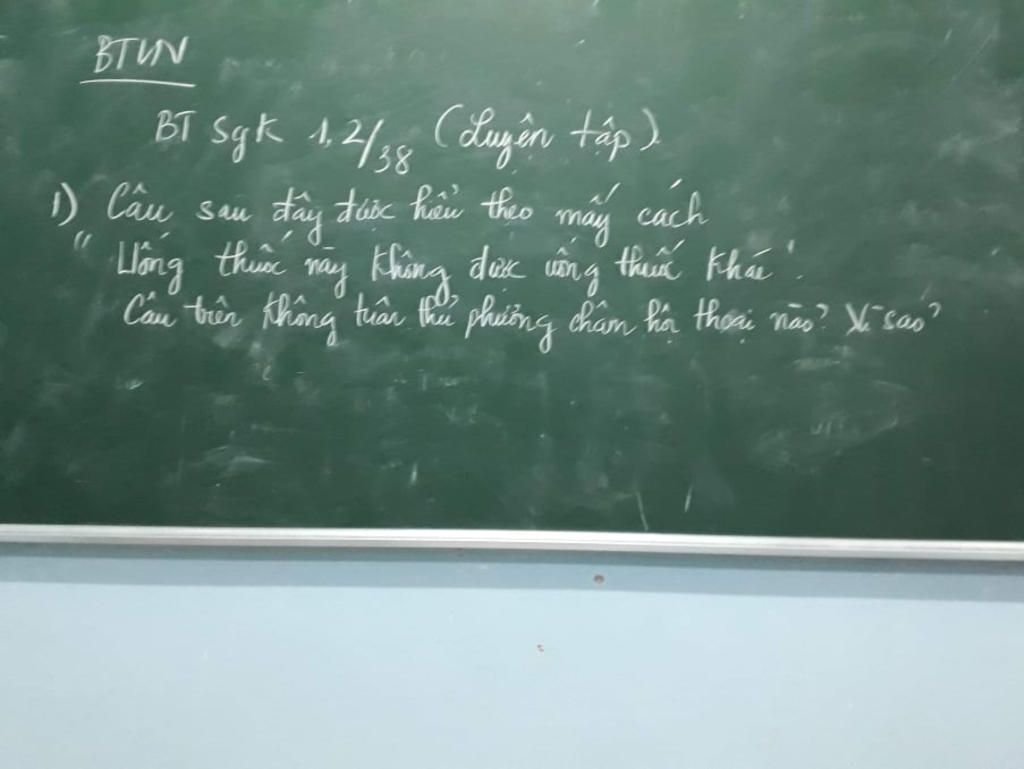 BTVN
BT SgK 1,2/38 (Luyện tập)
1) Câu sau đây được hiểu theo mấy cách
"Uống thuốc này không được uống thuốc khác".
Câu trên không tuân thủ phương châm hội thoại nào? Vì sao?